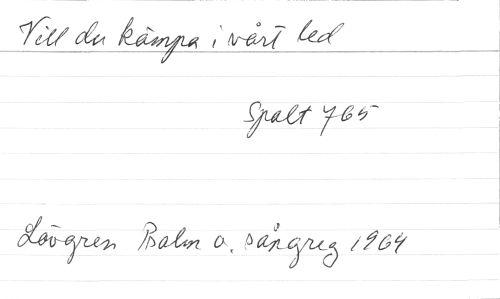 Vill du kämpa i vårt led
Spalt 765
Lövgren Psalm o. sångreg 1964